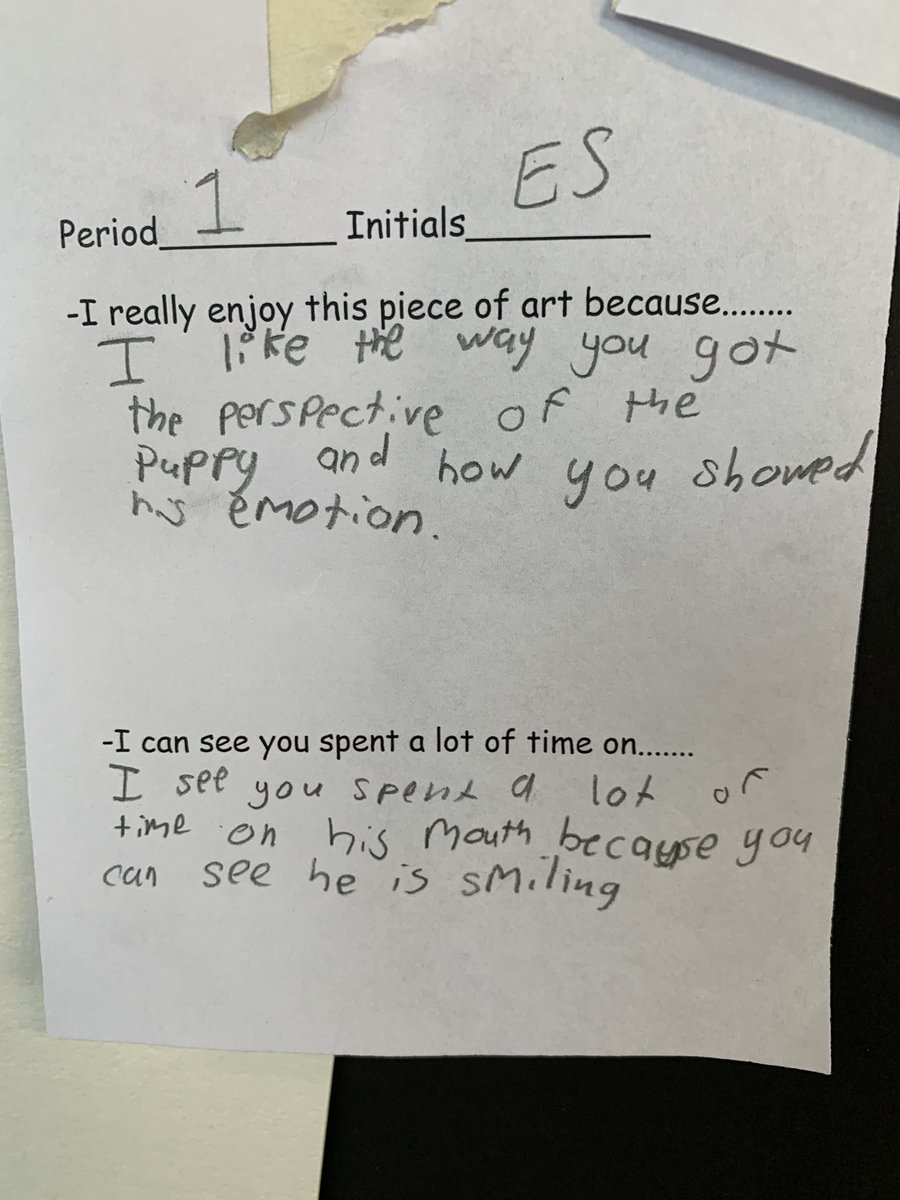 Period 1 Initials ES
-I really enjoy this piece of art because........
I like the way you got
the perspective of the
puppy and how you showed
his emotion.
-I can see you spent a lot of time on.......
I see you spent a lot of
time on his mouth because you
can see he is smiling